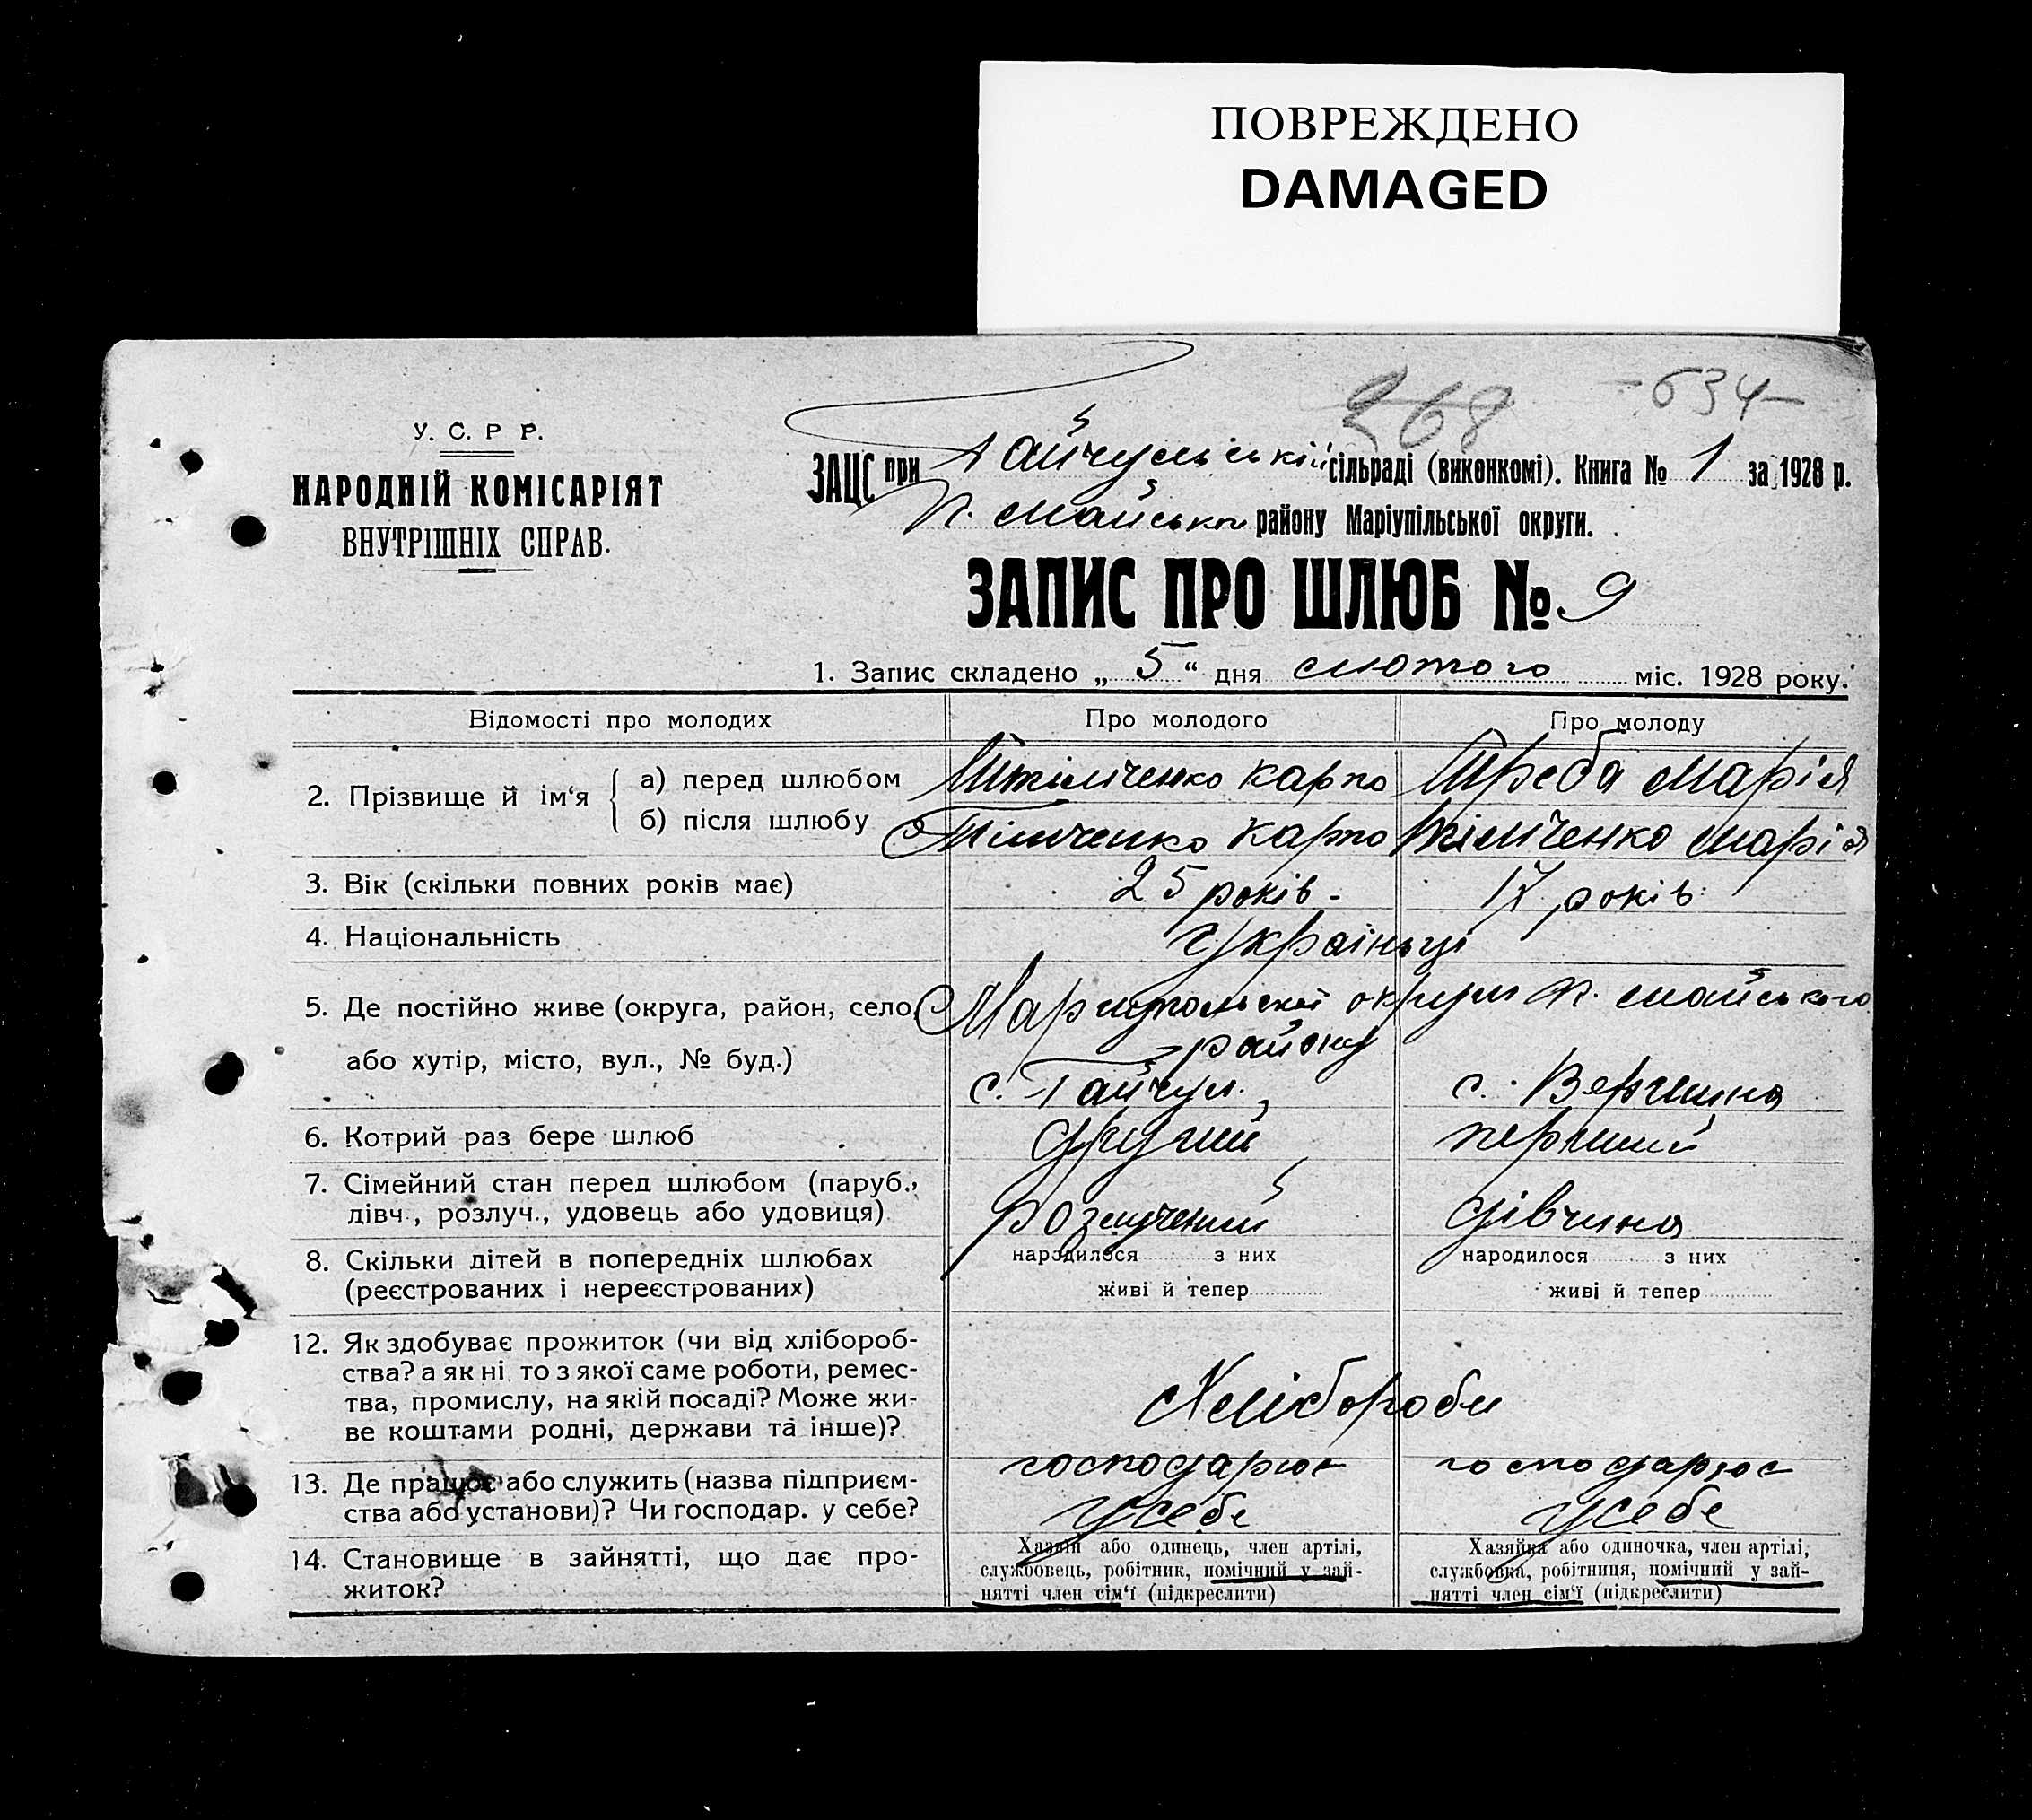 ПОВРЕЖДЕНО
DAMAGED
268 -634-
У. С. Р Р.
НАРОДНІЙ КОМІСАРІЯТ
ВНУТРІШНІХ СПРАВ.
ЗАЦС при Гайчульській сільраді (виконкомі). Книга № 1 за 1928 р.
П. Майського району Маріупільської округи.
ЗАПИС ПРО ШЛЮБ № 9
1. Запис складено „ 5 “ дня лютого міс. 1928 року.
Відомості про молодих Про молодого Про молоду
2. Прізвище й ім‘я
а) перед шлюбом Тімченко Карпо Треба Марія
б) після шлюбу Тімченко Карпо Тімченко Марія
3. Вік (скільки повних років має) 25 років - 17 років
4. Національність Українці
5. Де постійно живе (округа, район, село, Маріупольської округи П. Майського
району
або хутір, місто, вул., № буд.) с. Гайчул. с. Вершина
6. Котрий раз бере шлюб другий перший
7. Сімейний стан перед шлюбом (паруб.,
дівч., розлуч., удовець або удовиця) розлучений дівчина
8. Скільки дітей в попередніх шлюбах народилося з них народилося з них
(реєстрованих і нереєстрованих) живі й тепер живі й тепер
12. Як здобуває прожиток (чи від хлібороб-
ства? а як ні то з якої саме роботи, ремес-
тва, промислу, на якій посаді? Може жи- Хлібороби
ве коштами родні, держави та інше)?
13. Де працює або служить (назва підприєм- господарює господарює
ства або установи)? Чи господар. у себе? у себе у себе
14. Становище в зайнятті, що дає про-
житок?
Хазяїн або одинець, член артілі,
службовець, робітник, помічний у зай-
нятті член сім‘ї (підкреслити)
Хазяйка або одиночка, член артілі,
службовка, робітниця, помічний у зай-
нятті член сім‘ї (підкреслити)